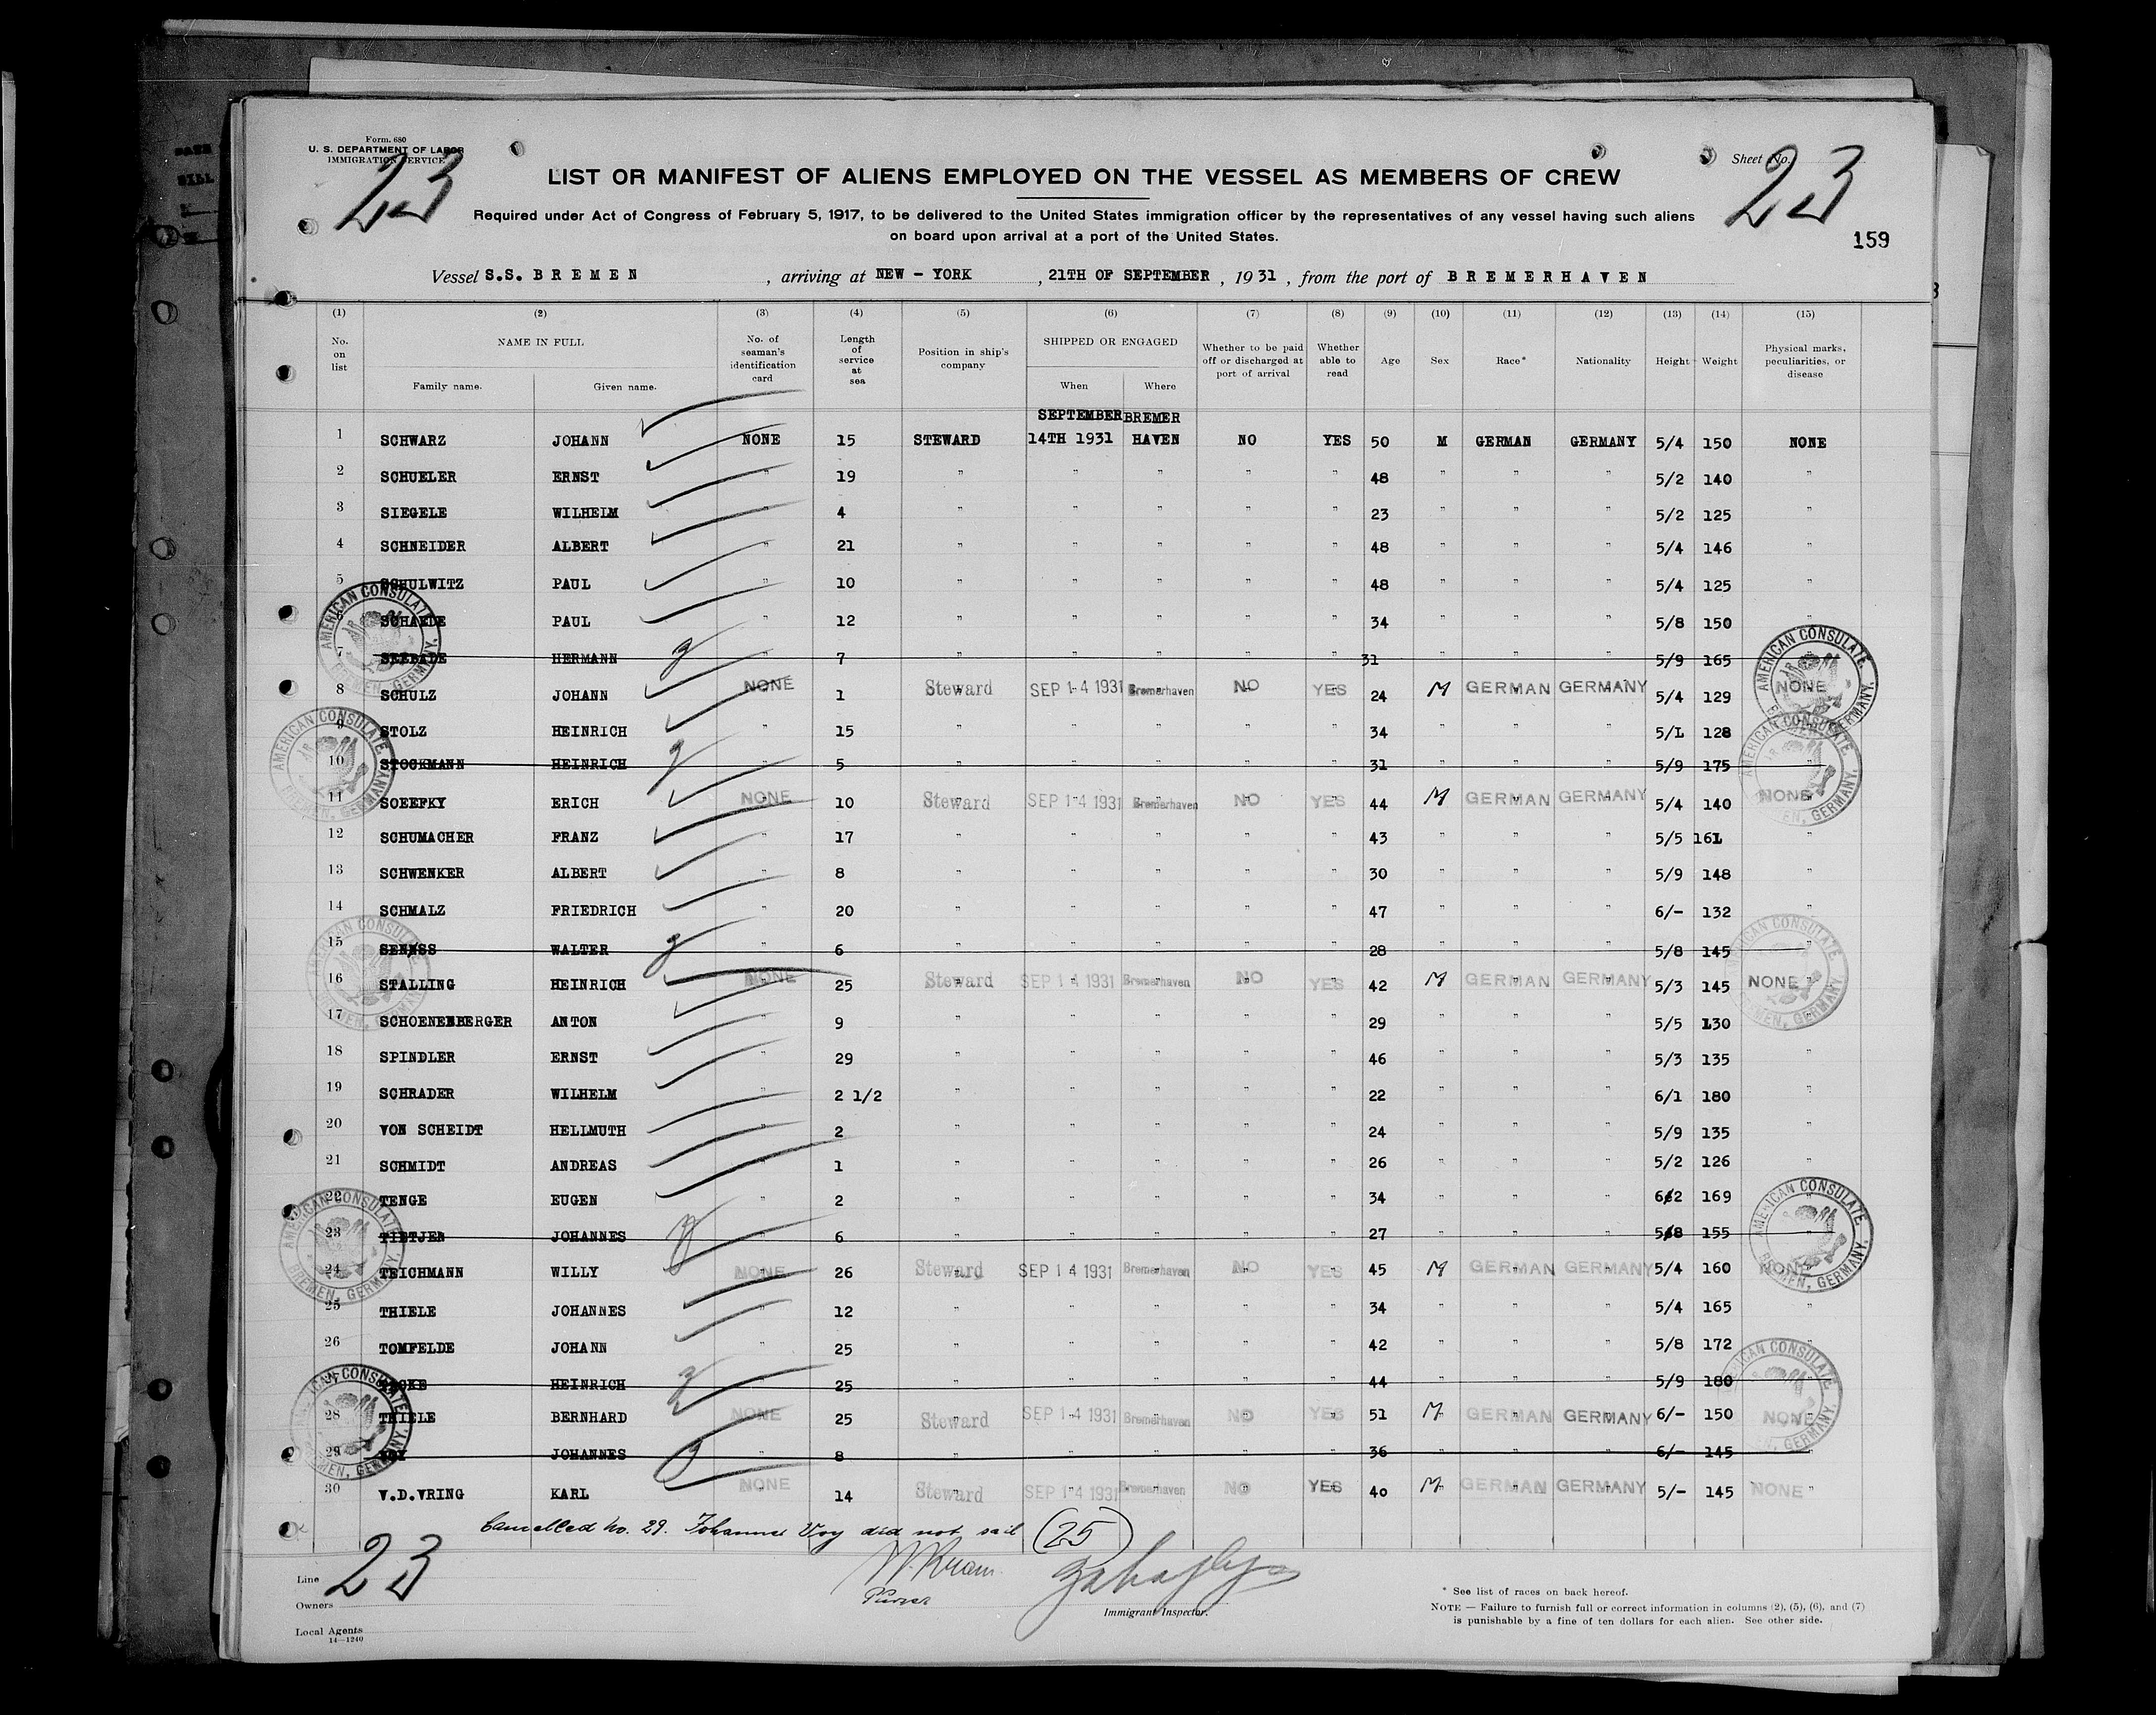 Form. 680
U. S. DEPARTMENT OF LABOR
IMMIGRATION SERVICE
23
Sheet No. 23
LIST OR MANIFEST OF ALIENS EMPLOYED ON THE VESSEL AS MEMBERS OF CREW
Required under Act of Congress of February 5, 1917, to be delivered to the United States immigration officer by the representatives of any vessel having such aliens
on board upon arrival at a port of the United States.
159
Vessel S.S. BREMEN , arriving at NEW - YORK , 21TH OF SEPTEMBER , 1931 , from the port of BREMERHAVEN
(1) (2) (3) (4) (5) (6) (7) (8) (9) (10) (11) (12) (13) (14) (15)
No. on list NAME IN FULL Family name. Given name. No. of seaman's identification card Length of service at sea Position in ship's company SHIPPED OR ENGAGED When Where Whether to be paid off or discharged at port of arrival Whether able to read Age Sex Race* Nationality Height Weight Physical marks, peculiarities, or disease
SEPTEMBER BREMER
1 SCHWARZ JOHANN NONE 15 STEWARD 14TH 1931 HAVEN NO YES 50 M GERMAN GERMANY 5/4 150 NONE
2 SCHUELER ERNST " 19 " " " " " 48 " " " 5/2 140 "
3 SIEGELE WILHELM " 4 " " " " " 23 " " " 5/2 125 "
4 SCHNEIDER ALBERT " 21 " " " " " 48 " " " 5/4 146 "
5 SCHULWITZ PAUL " 10 " " " " " 48 " " " 5/4 125 "
6 SCHAEDE PAUL " 12 " " " " " 34 " " " 5/8 150 "
7 SEEBADE HERMANN " 7 " " " " " 31 " " " 5/9 165
8 SCHULZ JOHANN NONE 1 Steward SEP 14 1931 Bremerhaven NO YES 24 M GERMAN GERMANY 5/4 129 NONE
9 STOLZ HEINRICH " 15 " " " " " 34 " " " 5/1 128
10 STOCKMANN HEINRICH " 5 " " " " " 31 " " " 5/9 175 "
11 SOEEFKY ERICH NONE 10 Steward SEP 14 1931 Bremerhaven NO YES 44 M GERMAN GERMANY 5/4 140 NONE
12 SCHUMACHER FRANZ " 17 " " " " " 43 " " " 5/5 161 "
13 SCHWENKER ALBERT " 8 " " " " " 30 " " " 5/9 148 "
14 SCHMALZ FRIEDRICH " 20 " " " " " 47 " " " 6/- 132 "
15 WALTER " 6 " " " " " 28 " " " 5/8 145 "
16 STALLING HEINRICH NONE 25 Steward SEP 14 1931 Bremerhaven NO YES 42 M GERMAN GERMANY 5/3 145 NONE "
17 SCHOENENBERGER ANTON 9 " " " " " 29 " " " 5/5 130 "
18 SPINDLER ERNST " 29 " " " " " 46 " " " 5/3 135 "
19 SCHRADER WILHELM " 2 1/2 " " " " " 22 " " " 6/1 180 "
20 VON SCHEIDT HELLMUTH " 2 " " " " " 24 " " " 5/9 135 "
21 SCHMIDT ANDREAS " 1 " " " " " 26 " " " 5/2 126 "
22 TENGE EUGEN " 2 " " " " " 34 " " " 6/2 169 "
23 TIETJEN JOHANNES " 6 " " " " " 27 " " " 5/8 155 "
24 TEICHMANN WILLY NONE 26 Steward SEP 14 1931 Bremerhaven NO YES 45 M GERMAN GERMANY 5/4 160 NONE
25 THIELE JOHANNES " 12 " " " " " 34 " " " 5/4 165 "
26 TOMFELDE JOHANN " 25 " " " " " 42 " " " 5/8 172 "
27 HEINRICH " 25 " " " " " 44 " " " 5/9 180 "
28 THIELE BERNHARD NONE 25 Steward SEP 14 1931 Bremerhaven NO YES 51 M GERMAN GERMANY 6/- 150 NONE
29 VOY JOHANNES " 8 " " " " " 36 " " " 6/- 145 "
30 V.D.VRING KARL NONE 14 Steward SEP 14 1931 Bremerhaven NO YES 40 M GERMAN GERMANY 5/- 145 NONE "
Cancelled no. 29. Johannes Voy did not sail (25)
AMERICAN CONSULATE. BREMEN, GERMANY.
AMERICAN CONSULATE. BREMEN, GERMANY.
AMERICAN CONSULATE. BREMEN, GERMANY.
AMERICAN CONSULATE BREMEN, GERMANY.
AMERICAN CONSULATE BREMEN, GERMANY.
AMERICAN CONSULATE BREMEN, GERMANY.
AMERICAN CONSULATE BREMEN, GERMANY.
AMERICAN CONSULATE. BREMEN, GERMANY.
AMERICAN CONSULATE BREMEN, GERMANY.
AMERICAN CONSULATE BREMEN, GERMANY.
23
Line
Owners
Local Agents
14—1240
Purser
Immigrant Inspector.
* See list of races on back hereof.
NOTE — Failure to furnish full or correct information in columns (2), (5), (6), and (7)
is punishable by a fine of ten dollars for each alien. See other side.